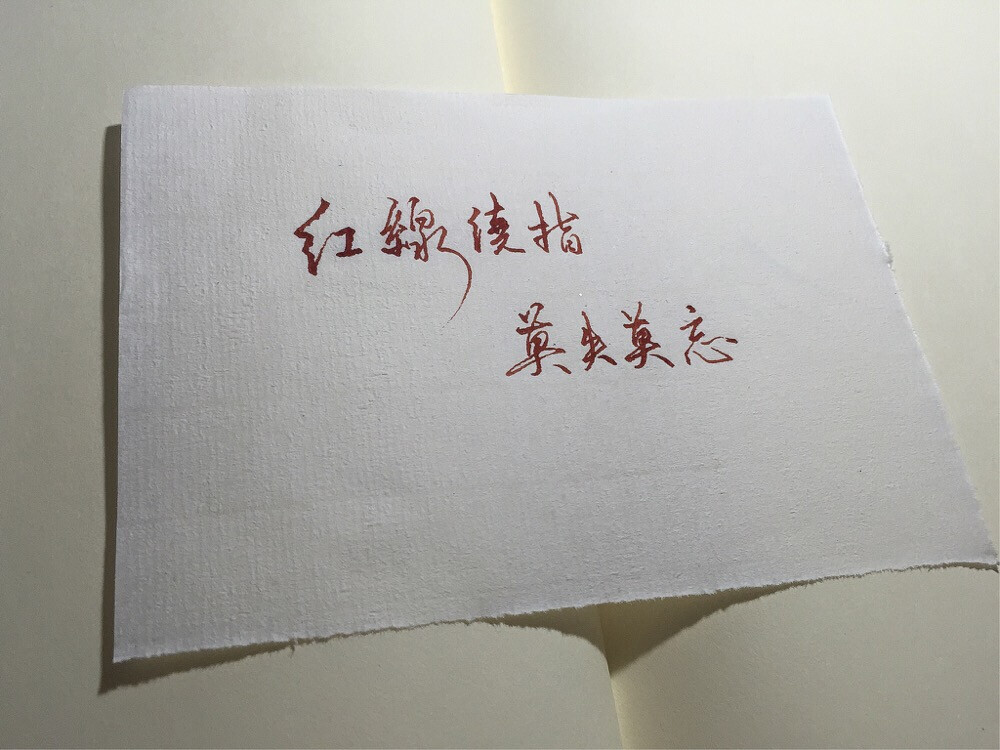 红線绕指
莫失莫忘